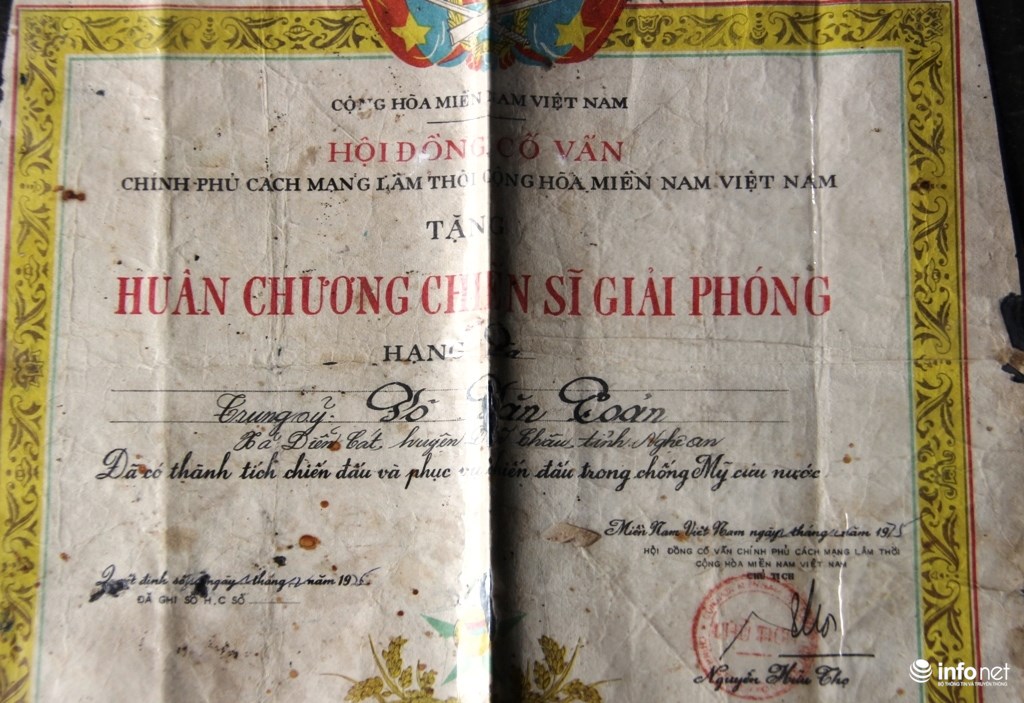 CỘNG HÒA MIỀN NAM VIỆT NAM
HỘI ĐỒNG CỐ VẤN
CHÍNH PHỦ CÁCH MẠNG LÂM THỜI CỘNG HÒA MIỀN NAM VIỆT NAM
TẶNG
HUÂN CHƯƠNG CHIẾN SĨ GIẢI PHÓNG
HẠNG Ba
Trung sỹ: Văn Toán
Xã Diễn Cát, huyện Châu tỉnh Nghệ an
Đã có thành tích chiến đấu và phục vụ chiến đấu trong chống Mỹ cứu nước
Miền Nam Việt Nam ngày tháng năm 1975
HỘI ĐỒNG CỐ VẤN CHÍNH PHỦ CÁCH MẠNG LÂM THỜI
CỘNG HÒA MIỀN NAM VIỆT NAM
CHỦ TỊCH
Quyết định số ngày tháng năm
ĐÃ GHI SỔ H.C SỐ
Nguyễn Hữu Thọ
infonet
BỘ THÔNG TIN VÀ TRUYỀN THÔNG